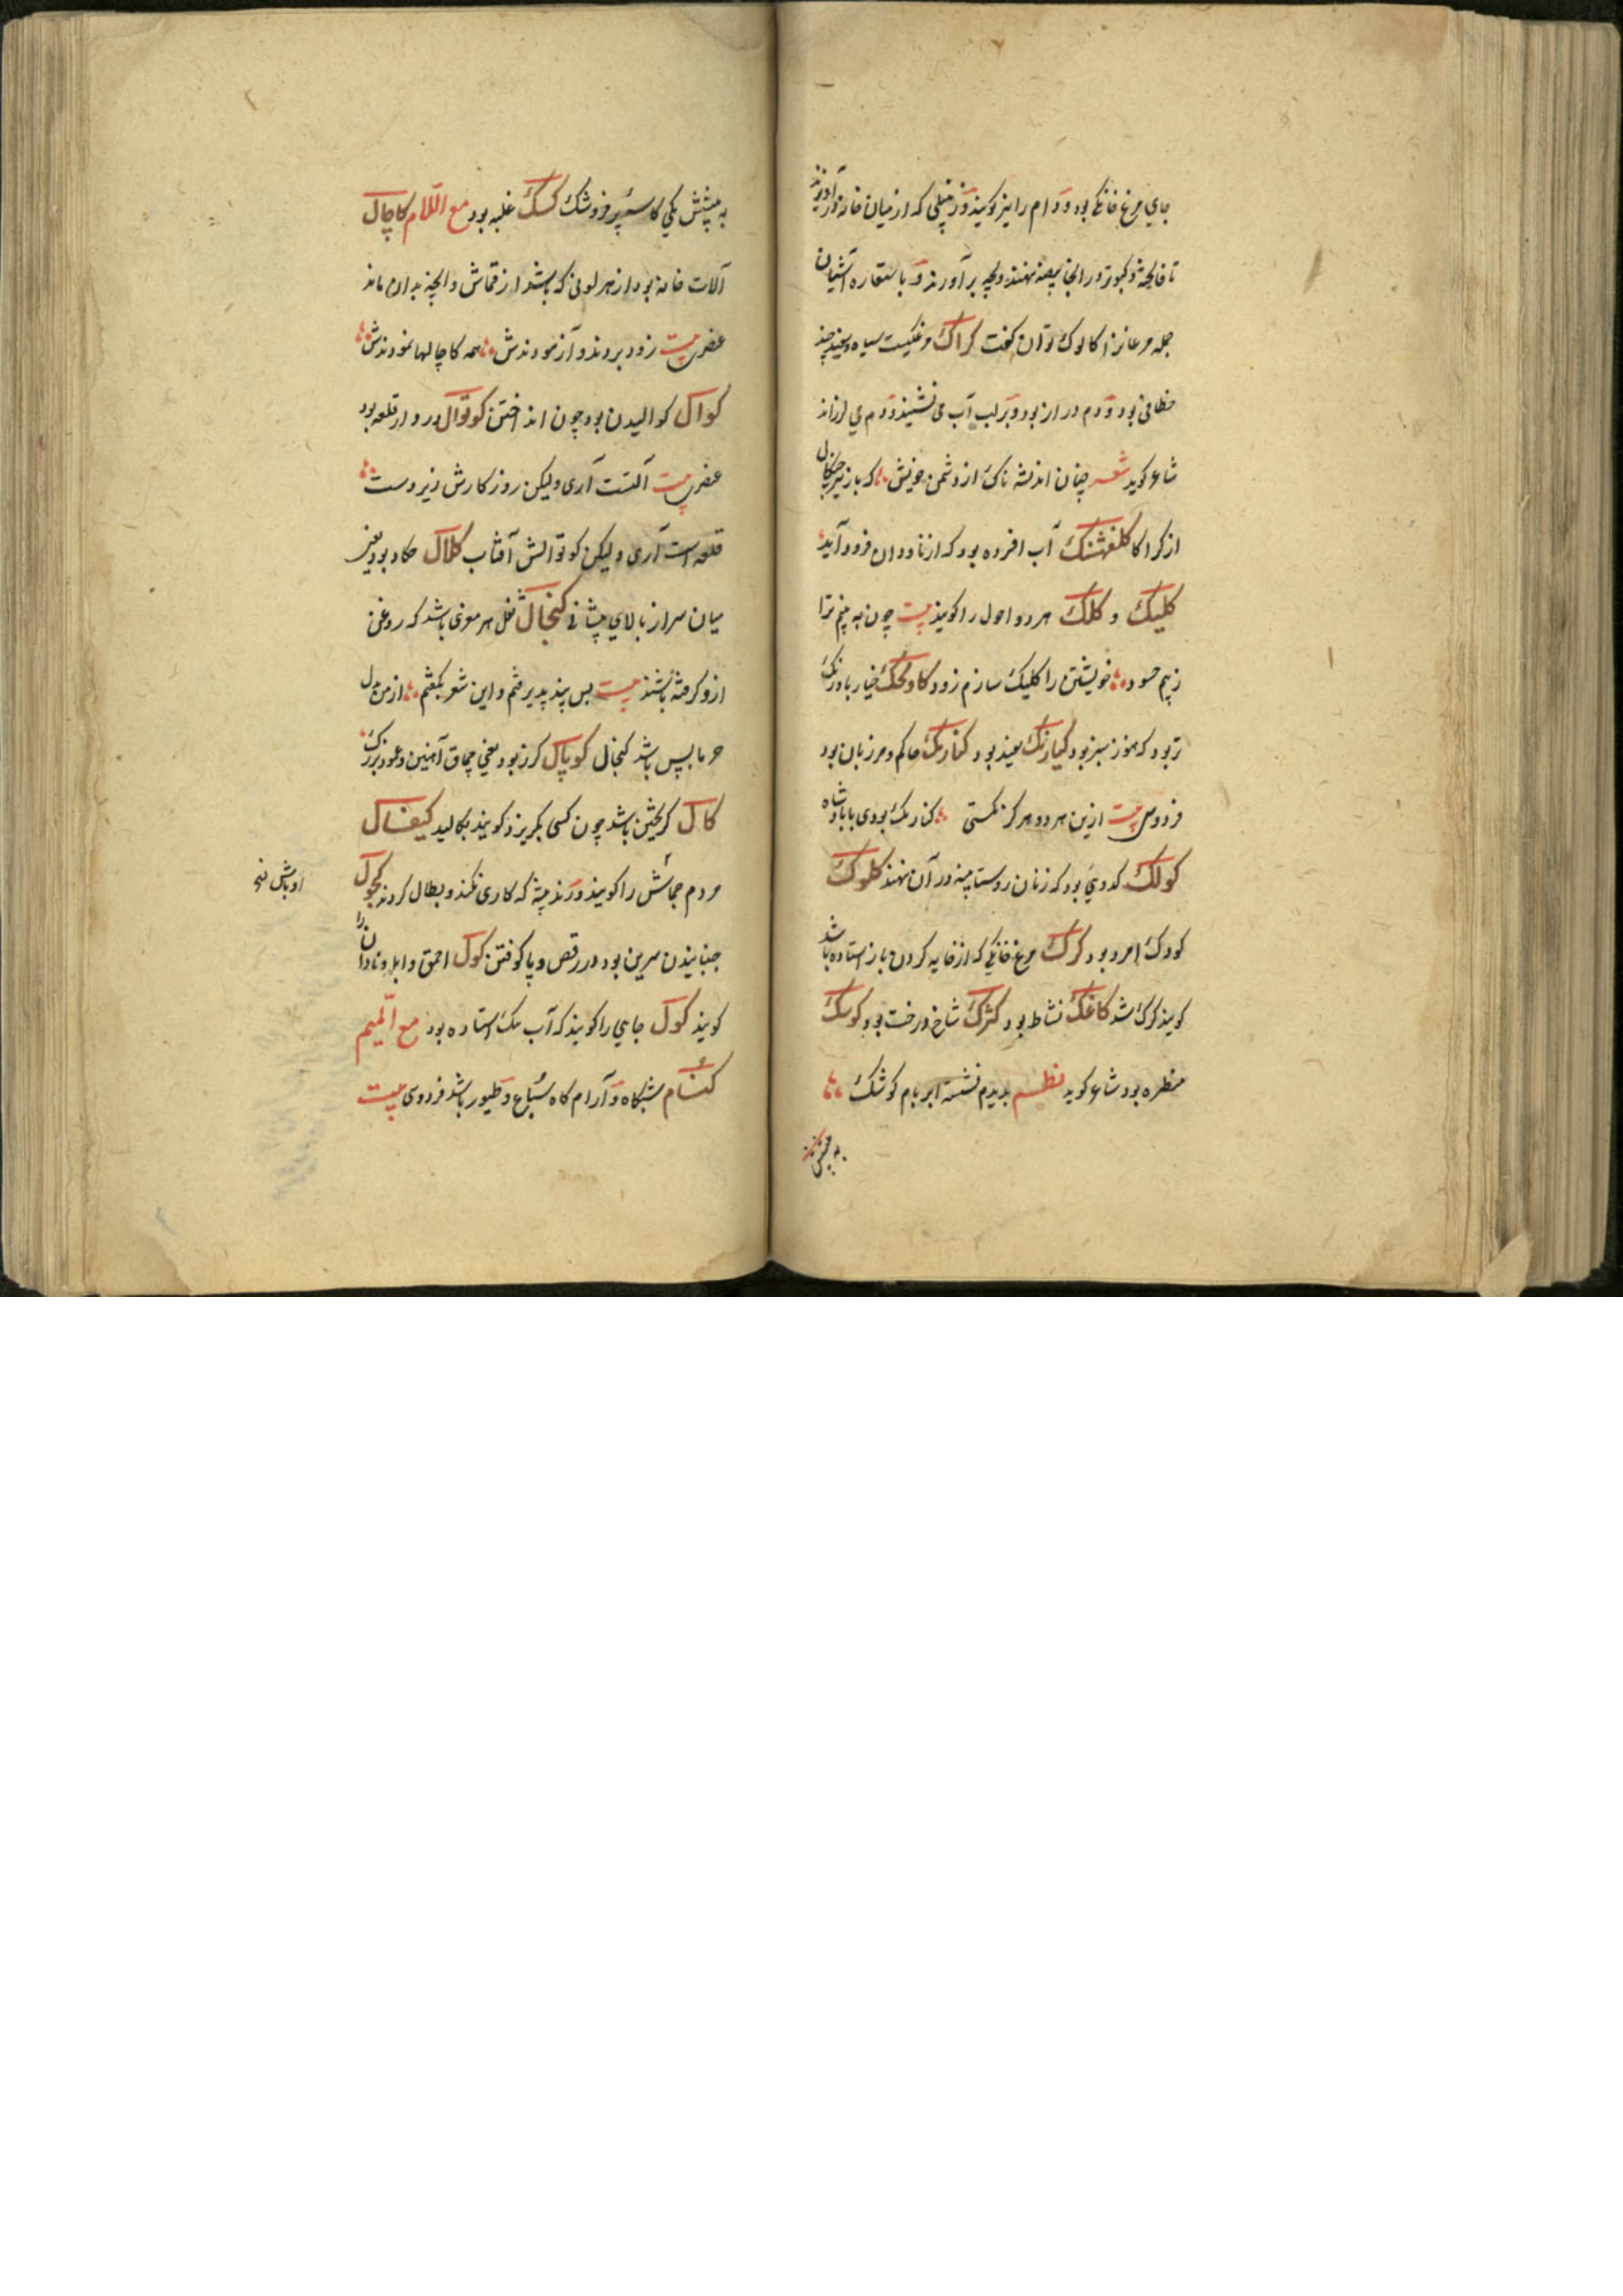 جاي مرغ خانگی بود و دام را نیز گویند و زنبیلی که از میان خانه در آویزند
تا فاخته و کبوتر در انجا بیضه نهند و بچه بر آورند و باستعاره آشیان
جمله مرغان را کالوک توان گفت کراک مرغکیست سیاه و سفید چند
خطافی بود و دم دراز بود و بر لب آب می نشیند و دم می لرزاند
شاعر گوید شعر چنان اندیشه ناک از دشمن خویش که باز تیز چنگال
از کراکا کلفشنک آب افسرده بود که از ناودان فرود آید
کلیک و کلک هر دو احول را گویند بیت چون به بینم ترا
زبیم حسود خویشتن را کلیک سازم زود کاولجک خیار بادرنگ
تر بود که هنوز سبز بود کیارنک سفید بود کنارنک حاکم و مرزبان بود
فردوسی بیت ازین هر دو هرگز نگستی کنارنک بودی بابادشاه
کولک کدویی بود که زنان روستا پنبه در آن نهند کلوک
کودک امرد بود کرک مرغ خانگی که از خایه کردن باز استاده باشد
گویند کرک شد کاغک نشاط بود کثرک شاخ درخت بود کوشک
منظره بود شاعر گوید نظم بدیدم نشسته ابر بام کوشک
به پیشش
به پیشش یکی کاسه پر فروشک کسک غلبه بود مع اللام کاچال
آلات خانه بود از هر لونی که باشد از قماش و انچه بدان ماند
عنصری بیت زود بردند و آزمودندش همه کاچالها نمودندش
کوال کوالیدن بود چون اندوختن کوتوال دز دار قلعه بود
عنصری بیت آلتست آری ولیکن روزگارش زیر دست
قلعه است آری ولیکن کوتوالش آفتاب کلال حکاد بود یعنی
میان سر از بالاي پیشانی کنجال ثفل هر مغزی باشد که روغن
ازو گرفته باشند بیت بس پند پذیرفتم و این شعر بگفتم از من بدل
خرما بس باشد کنجال کوپال گرز بود یعنی چماق آهنین و عمود بزرگ
کال گریختن باشد چون کسی بگریزد گویند بکالید کیفال
مردم جماش را گویند و رند پیشه که کاری نکند و بطال گردند کچول
اوباش نسخه
جنبانیدن سرین بود در رقص و پا کوفتن کول احمق و ابله و نادان را
گویند کول جایی را گویند که آب تنک استاده بود مع المیم
کنام شبگاه و آرام گاه سباع و طیور باشد فردوسی بیت